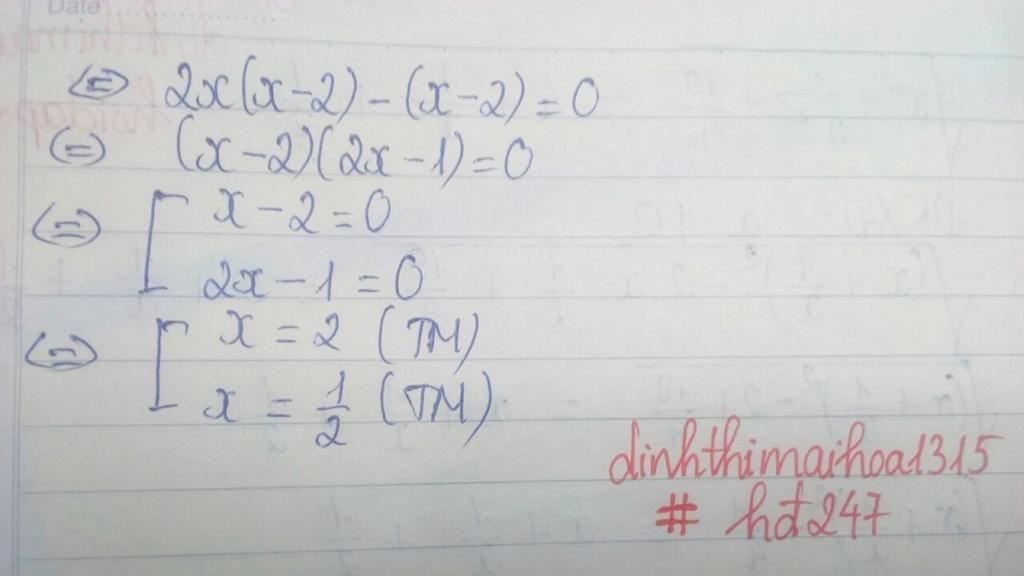 Date
⇔ 2x(x-2)-(x-2)=0
⇔ (x-2)(2x-1)=0
⇔ [ x-2=0
2x-1=0
⇔ [ x=2 (TM)
x=1/2 (TM)
dinhthimaihoa1315
# hđ247